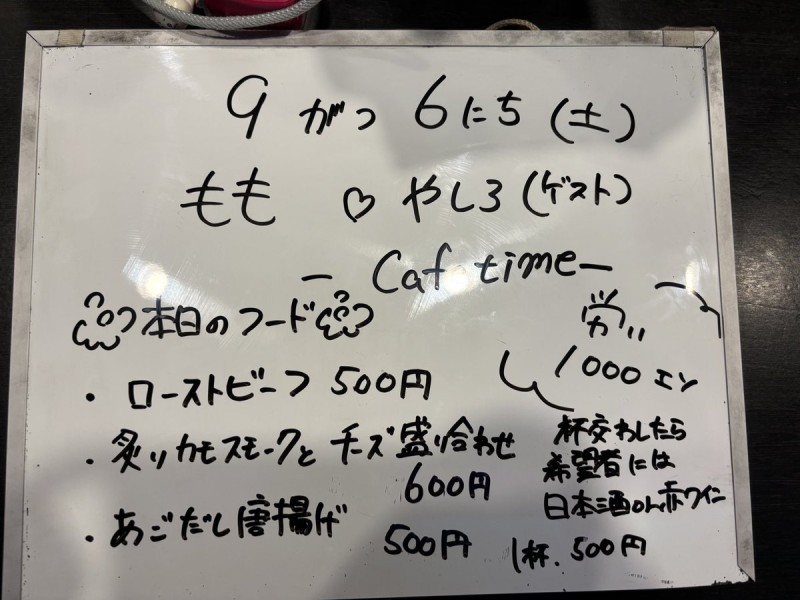 9がつ 6にち (土)
もも ♡ やしろ (ゲスト)
ー Caf time ー
本日のフード
・ローストビーフ 500円
・炙りカモスモークとチーズ盛り合わせ
600円
・あごだし唐揚げ
500円
1000エン
杯交わしたら
希望者には
日本酒or赤ワイン
1杯. 500円